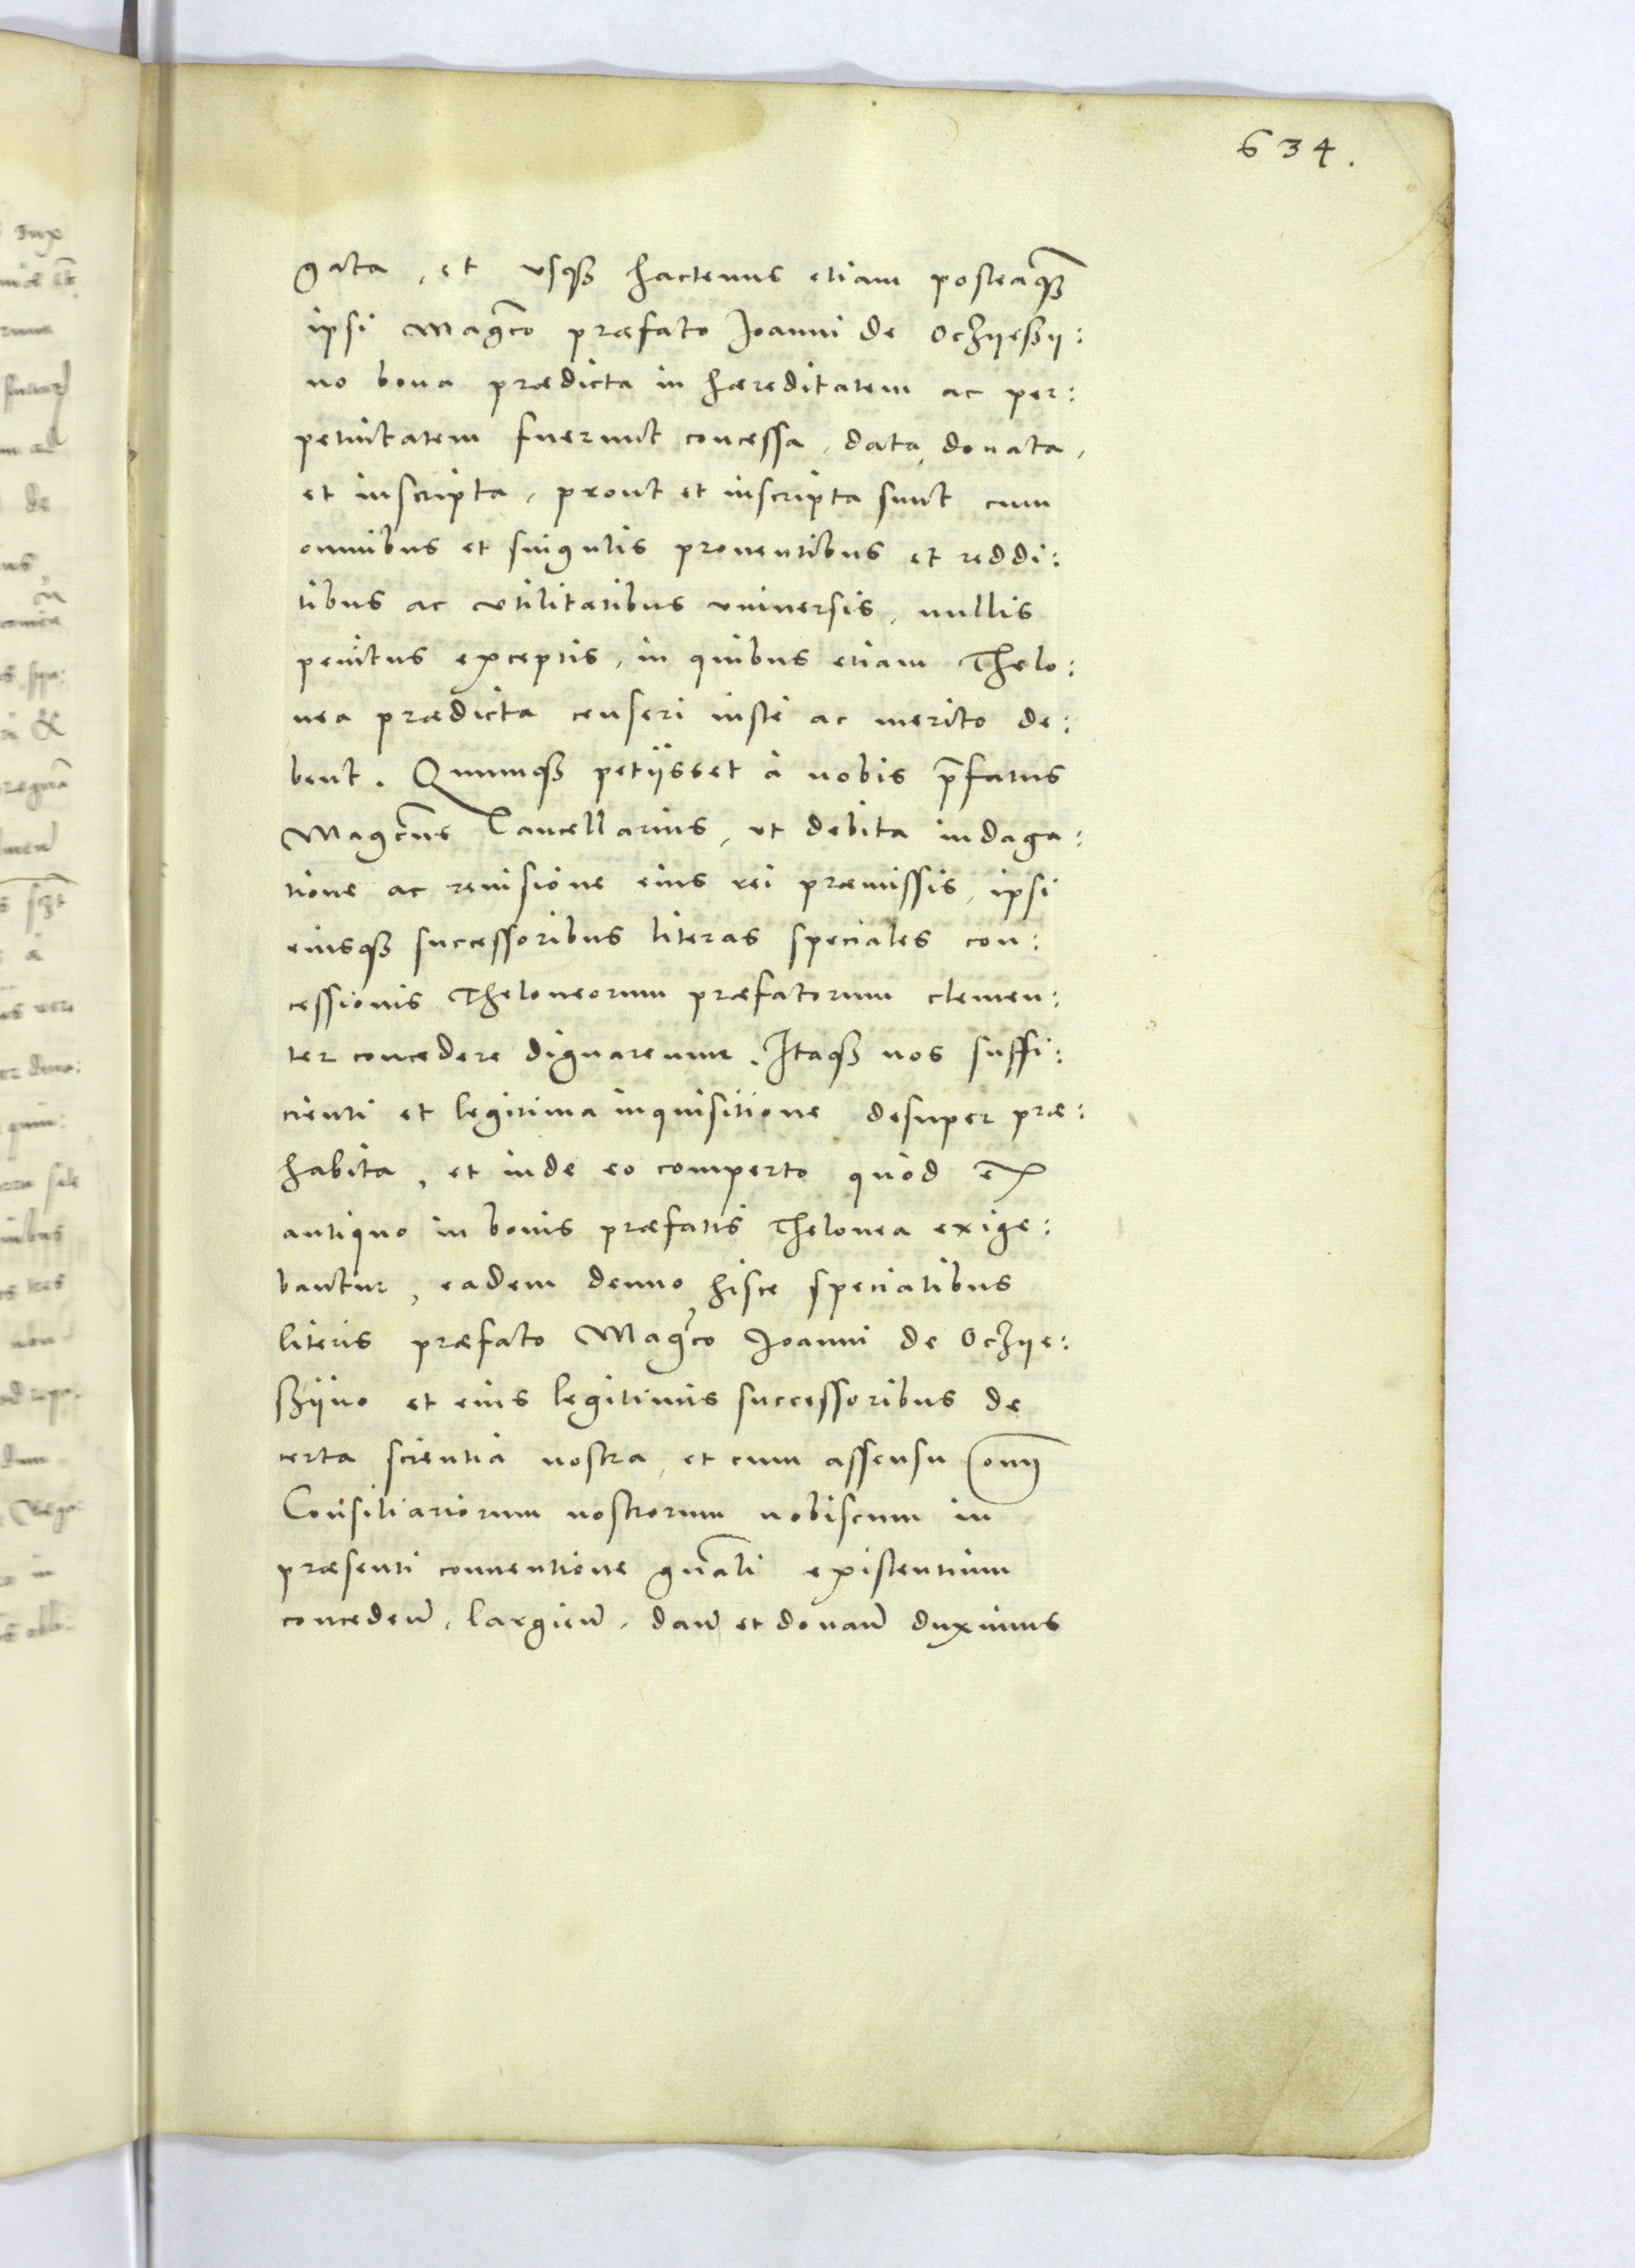 634.
gata, et vsq₃ hactenus etiam posteaq̃₃
ipsi Magc̃o præfato Joanni de Oczÿeßÿ:
no bona prædicta in hæreditatem ac per:
petuitatem fuerunt concessa, data, donata,
et inscripta, prout et inscripta sunt cum
omnibus et singulis prouentibus et reddi:
tibus ac vtilitatibus vniuersis, nullis
penitus exceptis, in quibus etiam Thelo:
nea prædicta censeri iuste ac merito de:
bent. Quumq₃ petijsset à nobis p̃fatus
Magc̃us Cancellarius, vt debita indaga:
tione ac reuisione eius rei præmissis, ipsi
eiusq₃ successoribus literas speciales con:
cessionis Theloneorum præfatorum clemen:
ter concedere dignaremur. Itaq₃ nos suffi:
cienti et legitima inquisitione desuper præ:
habita, et inde eo comperto quòd ex
antiquo in bonis præfatis Thelonea exige:
bantur, eadem denuo hisce specialibus
literis præfato Magc̃o Joanni de Oczÿe:
szÿno et eius legitimis successoribus de
certa scientia nostra, et cum assensu om̃
Consiliariorum nostrorum nobiscum in
præsenti conuentione gñali existentium
conceden̄, largien̄, dan̄ et donan̄ duximus